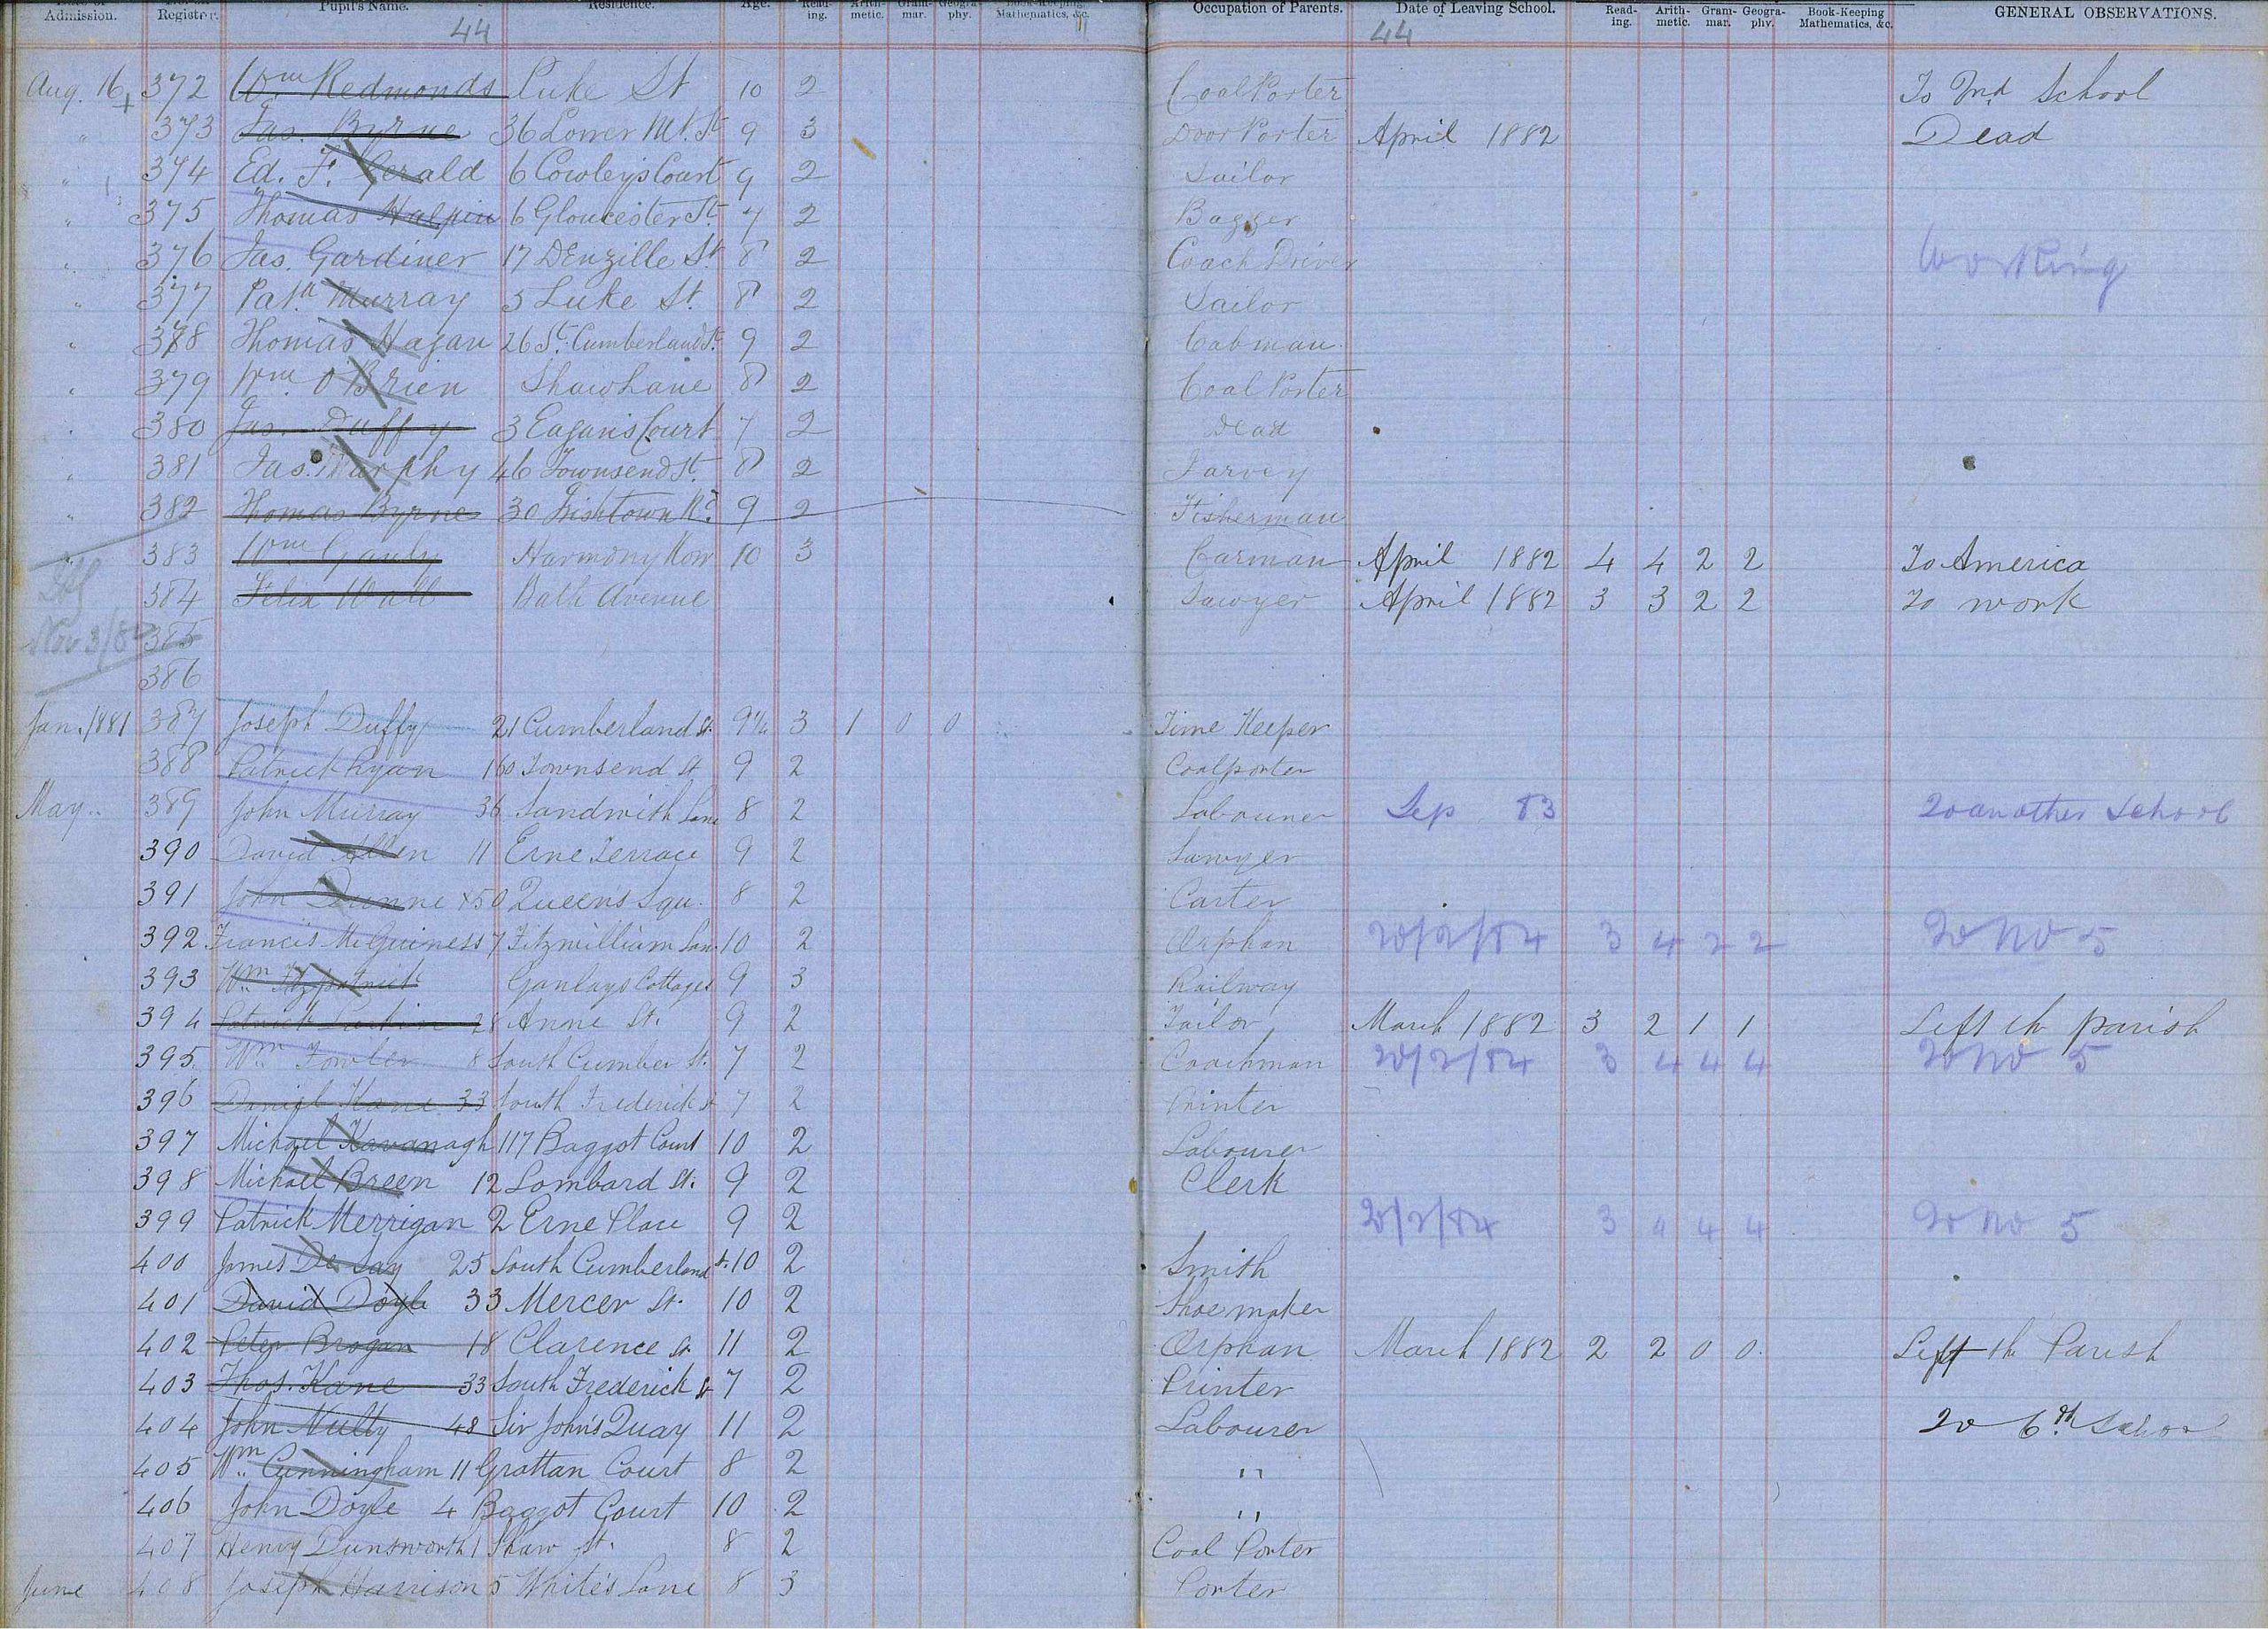 Admission. Register. Pupil's Name. Residence. Age. Read-ing. Arith-metic. Gram-mar. Geogra-phy. Book-Keeping Mathematics, &c. Occupation of Parents. Date of Leaving School. Read-ing. Arith-metic. Gram-mar. Geogra-phy. Book-Keeping Mathematics, &c. GENERAL OBSERVATIONS.
44 44
Aug. 16 + 372 Wm Redmonds Luke St 10 2 Coal Porter To Ind School
" 373 Jas. Byrne 36 Lower Mt. St 9 3 Door Porter April 1882 Dead
" 374 Ed. F. Gerald 6 Cowley's Court 9 2 Sailor
" 375 Thomas Halpin 6 Gloucester St. 7 2 Bagger
" 376 Jas. Gardiner 17 Denzille St. 8 2 Coach Driver Working
" 377 Patk Murray 5 Luke St. 8 2 Sailor
" 378 Thomas Hagan 26 St. Cumberland St. 9 2 Cabman
" 379 Wm O'Brien Shaw Lane 8 2 Coal Porter
" 380 Jas. Duffy 3 Eagan's Court 7 2 Dead
" 381 Jas. Murphy 46 Townsend St. 8 2 Jarvey
" 382 Thomas Byrne 30 Irishtown Rd. 9 2 Fisherman
" 383 Wm Ganly Harmony Row 10 3 Carman April 1882 4 4 2 2 To America
384 Felix Wall Bath Avenue Sawyer April 1882 3 3 2 2 To work
Nov 3/80 385
386
Jan. 1881 387 Joseph Duffy 21 Cumberland St. 9½ 3 1 0 0 Time Keeper
388 Patrick Ryan 160 Townsend St 9 2 Coalporter
May.. 389 John Murray 36 Sandwith Lane 8 2 Labourer Sep 83 To another School
390 David Allen 11 Erne Terrace 9 2 Sawyer
391 John Dunne 50 Queen's Squ. 8 2 Carter
392 Francis McGuiness 7 Fitzwilliam Lan. 10 2 Orphan 20/2/84 3 4 2 2 To No 5
393 Wm Fitzpatrick Ganlays Cottages 9 3 Railway
394 Patrick 28 Anne St. 9 2 Tailor March 1882 3 2 1 1 Left th parish
395 Wm Fowler 8 South Cumber St. 7 2 Coachman 20/2/84 3 4 4 4 To No 5
396 Daniel Kane 33 South Frederick St 7 2 Printer
397 Michael Kavanagh 117 Baggot Court 10 2 Labourer
398 Michael Breen 12 Lombard St. 9 2 Clerk
399 Patrick Merrigan 2 Erne Place 9 2 20/2/84 3 4 4 4 To No 5
400 James De Lay 25 South Cumberland St. 10 2 Smith
401 David Doyle 33 Mercer St. 10 2 Shoemaker
402 Peter Brogan 18 Clarence St 11 2 Orphan March 1882 2 2 0 0. Left th Parish
403 Thos. Kane 33 South Frederick St 7 2 Printer
404 John Nulty 48 Sir John's Quay 11 2 Labourer To 6th School
405 Wm Cunningham 11 Grattan Court 8 2 "
406 John Doyle 4 Baggot Court 10 2 "
407 Henry Dunsworth 1 Shaw St. 8 2 Coal Porter
June 408 Joseph Harrison 5 White's Lane 8 3 Porter